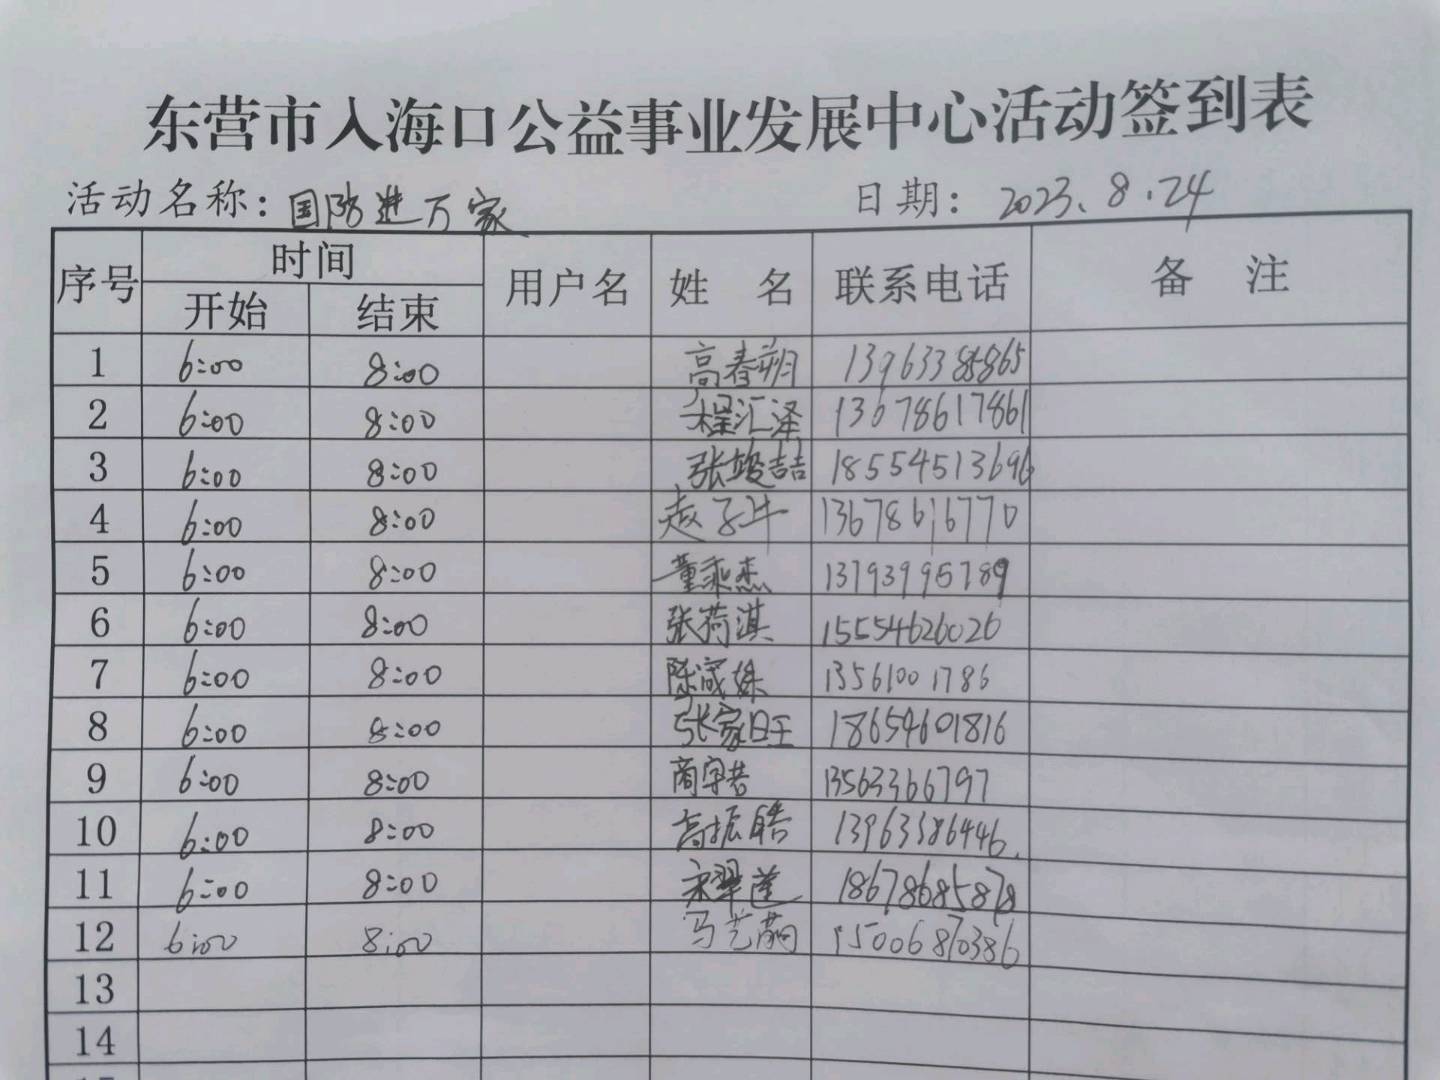 东营市入海口公益事业发展中心活动签到表
活动名称：国防进万家 日期：2023.8.24
序号 时间 用户名 姓名 联系电话 备注
开始 结束
1 6:00 8:00 高春朔 13963385865
2 6:00 8:00 程汇泽 13678617861
3 6:00 8:00 张竣喆 18554513696
4 6:00 8:00 13678616770
5 6:00 8:00 董乘杰 13793995789
6 6:00 8:00 张荷淇 15554626026
7 6:00 8:00 13561001786
8 6:00 8:00 张家旺 18654601816
9 6:00 8:00 13563366797
10 6:00 8:00 高振皓 13963386446
11 6:00 8:00 18678685878
12 6:00 8:00 15006870386
13
14